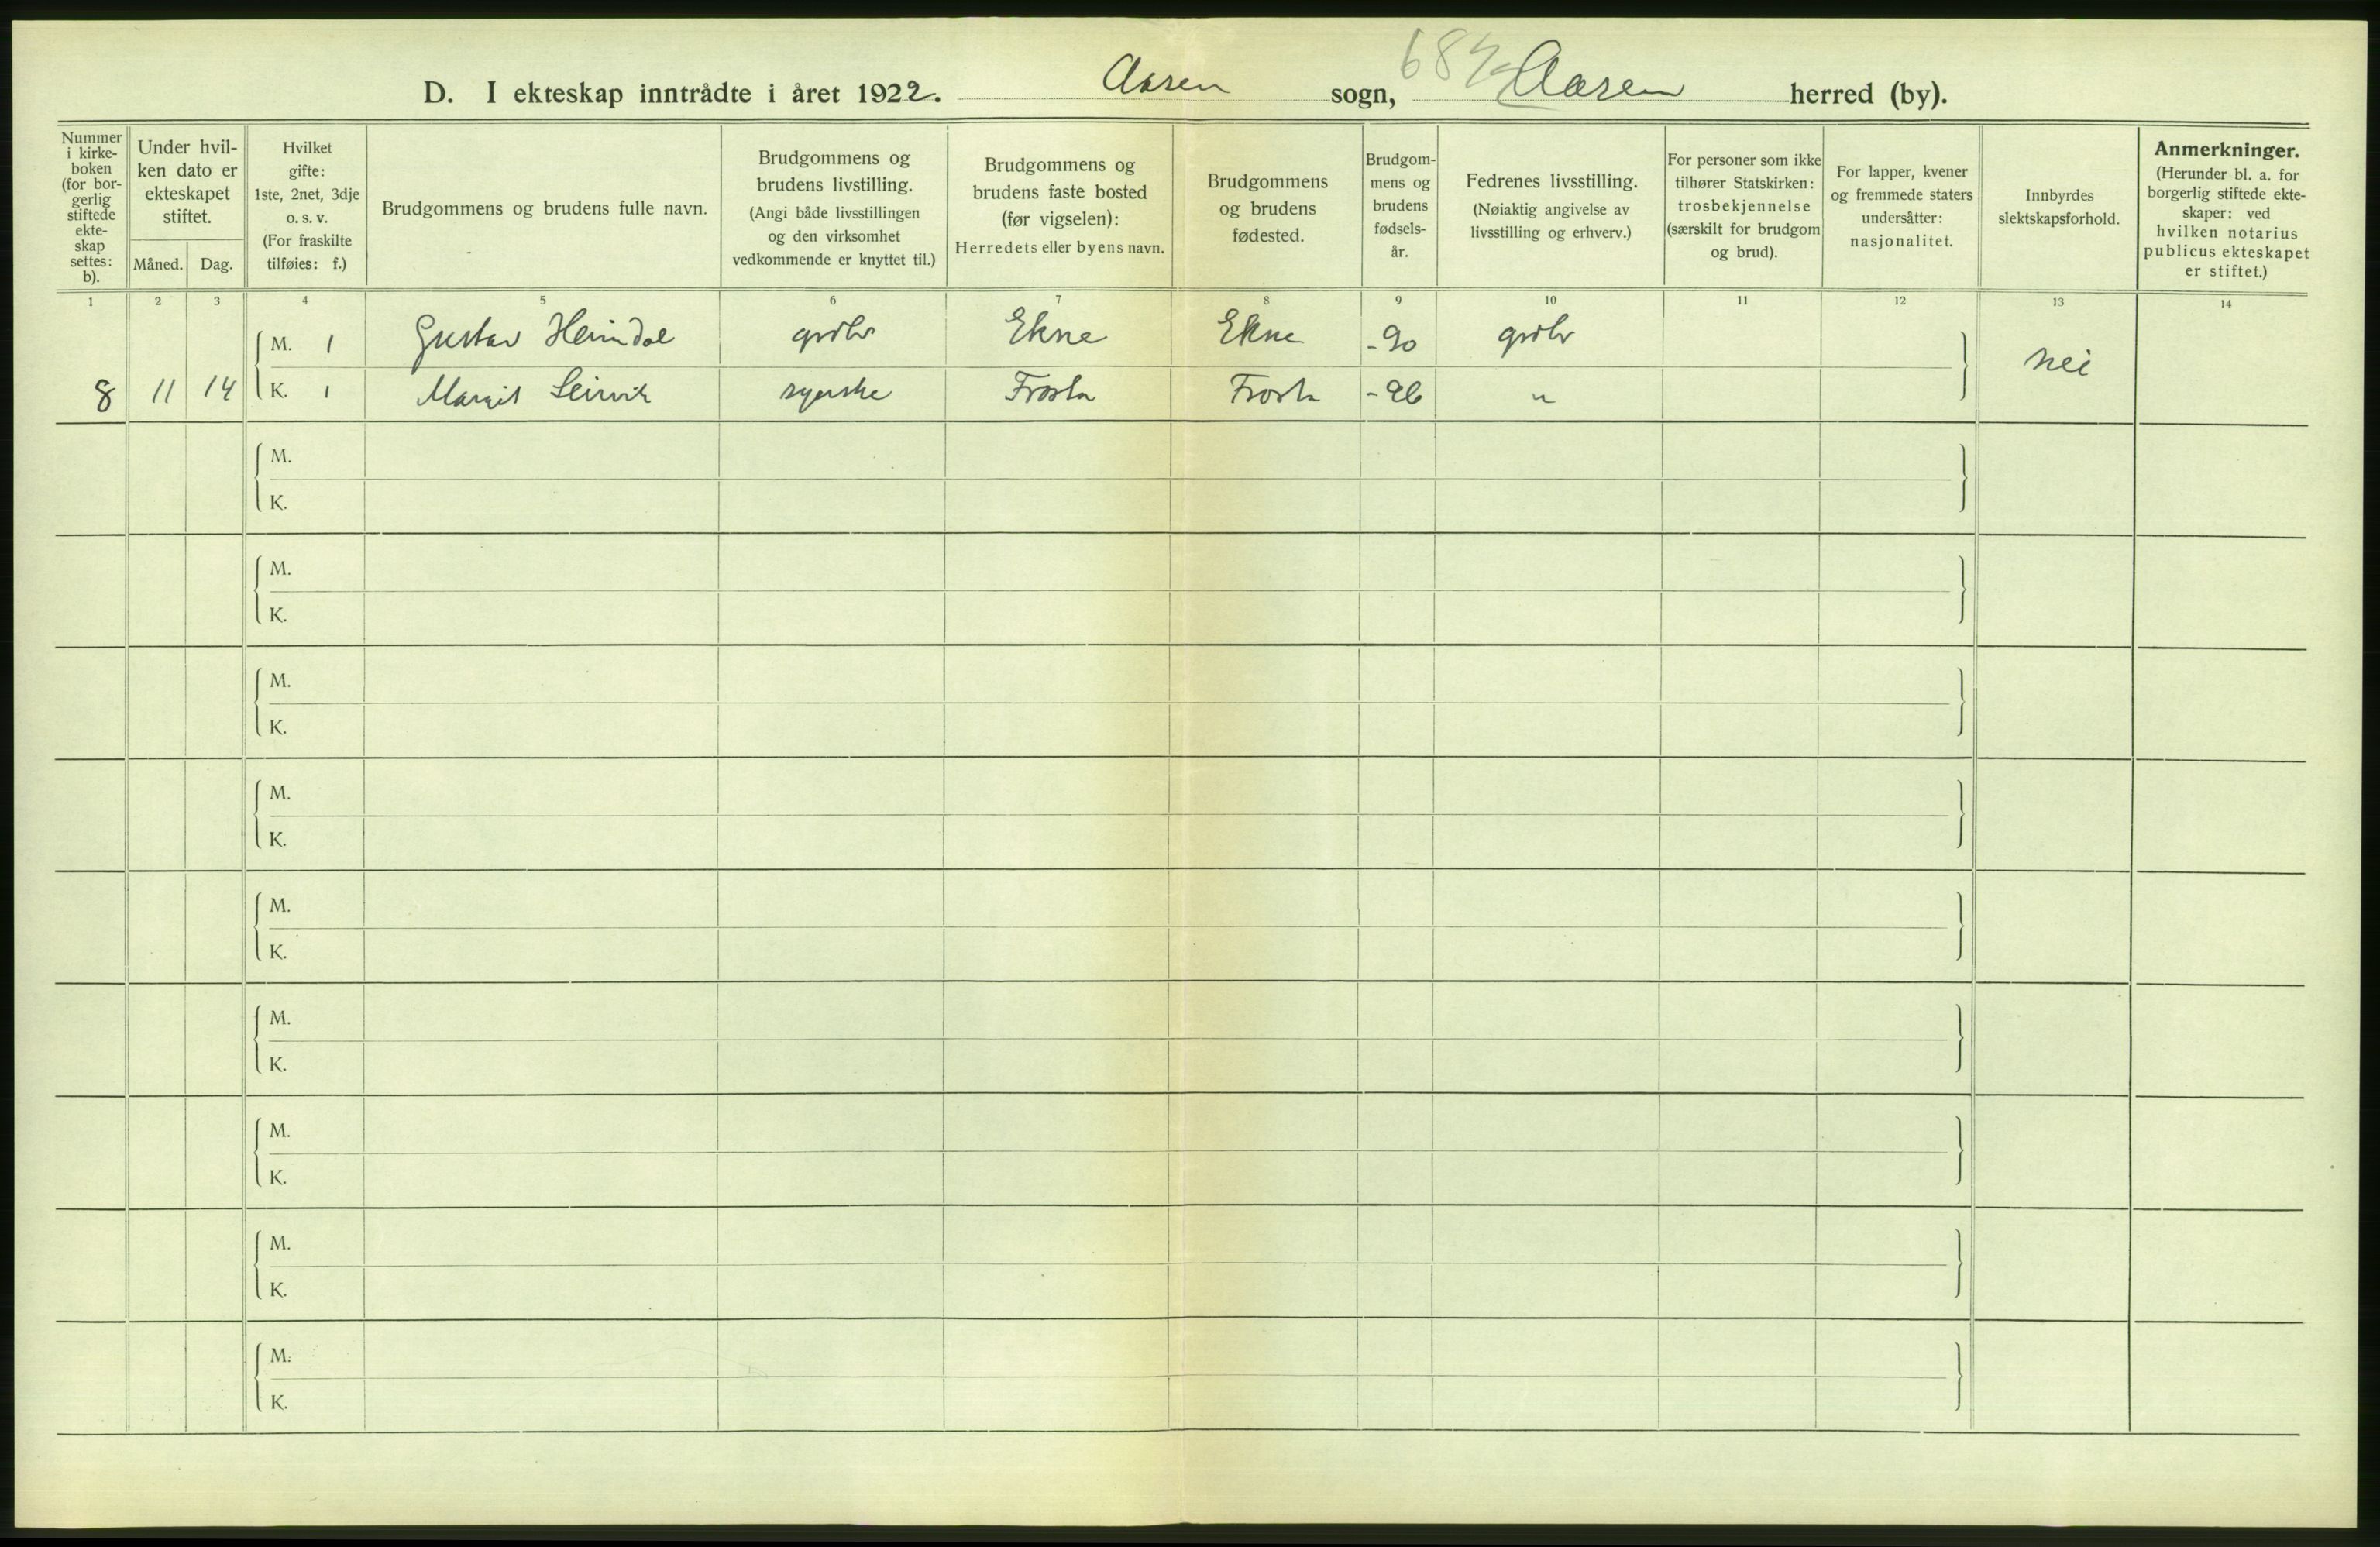 D. I ekteskap inntrådte i året 1922. Aasen sogn, Aasen herred (by).
Nummer i kirke-boken (for bor-gerlig stiftede ekte-skap settes: b).
Under hvil-ken dato er ekteskapet stiftet.
Måned. Dag.
Hvilket gifte: 1ste, 2net, 3dje o. s. v. (For fraskilte tilføies: f.)
Brudgommens og brudens fulle navn.
Brudgommens og brudens livstilling. (Angi både livsstillingen og den virksomhet vedkommende er knyttet til.)
Brudgommens og brudens faste bosted (før vigselen): Herredets eller byens navn.
Brudgommens og brudens fødested.
Brudgom-mens og brudens fødsels-år.
Fedrenes livsstilling. (Nøiaktig angivelse av livsstilling og erhverv.)
For personer som ikke tilhører Statskirken: trosbekjennelse (særskilt for brudgom og brud).
For lapper, kvener og fremmede staters undersåtter: nasjonalitet.
Innbyrdes slektskapsforhold.
Anmerkninger. (Herunder bl. a. for borgerlig stiftede ekte-skaper: ved hvilken notarius publicus ekteskapet er stiftet.)
1 2 3 4 5 6 7 8 9 10 11 12 13 14
M. 1 Gustav Heimdal grdbr Ekne Ekne -90 grdbr nei
8 11 14 K. 1 Margit Leirvik syerske Frosta Frosta -96 "
M.
K.
M.
K.
M.
K.
M.
K.
M.
K.
M.
K.
M.
K.
M.
K.
M.
K.